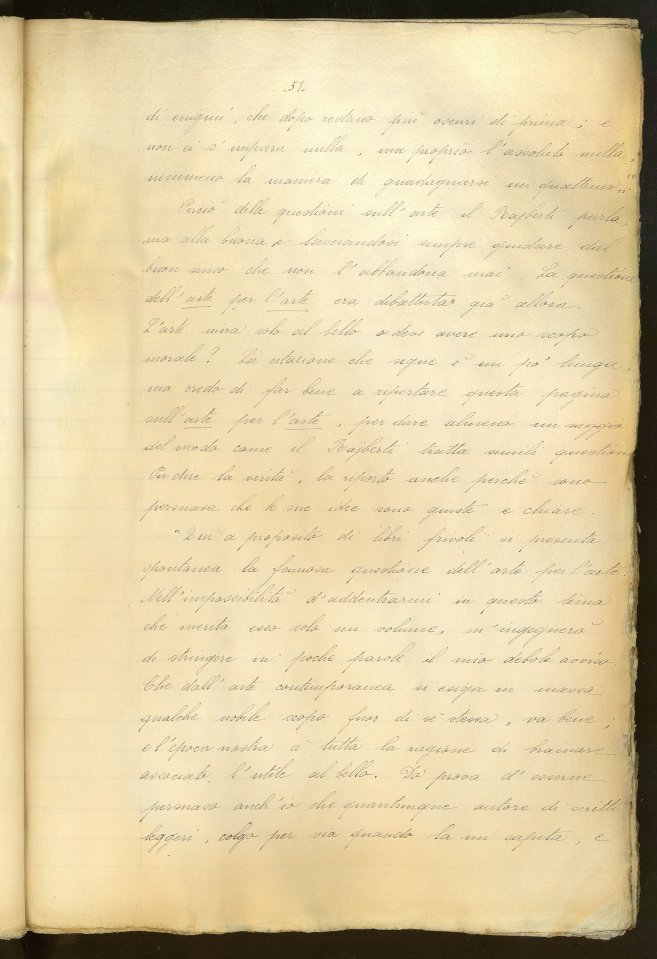 51
di enigmi, che dopo restano più oscuri di prima; e
non ci s'impara nulla, ma proprio l'assoluto nulla,
nemmeno la maniera di guadagnarsi un quattrino..."
Perciò delle questioni sull'arte il Rajberti parla,
ma alla buona e lasciandosi sempre guidare dal
buon senso che non l'abbandona mai. La questione
dell'arte per l'arte era dibattuta già allora.
L'arte mira solo al bello o deve avere uno scopo
morale? La citazione che segue è un po' lunga,
ma credo di far bene a riportare questa pagina
sull'arte per l'arte, per dare almeno un saggio
del modo come il Rajberti tratta simili questioni
Per dire la verità, la riporto anche perchè sono
persuasa che le sue idee sono giuste e chiare.
"Qui a proposito di libri frivoli si presenta
spontanea la famosa questione dell'arte per l'arte.
Nell'impossibilità d'addentrarmi in questo tema
che merita esso solo un volume, m'ingegnerò
di stringere in poche parole il mio debole avviso.
Che dall'arte contemporanea si esiga in massa
qualche nobile scopo fuor di sè stessa, va bene;
e l'epoca nostra à tutta la ragione di bramare
associato l'utile al bello. Dò prova d'esserne
persuaso anch'io che quantunque autore di scritti
leggeri, colgo per via quando la mi capita, e